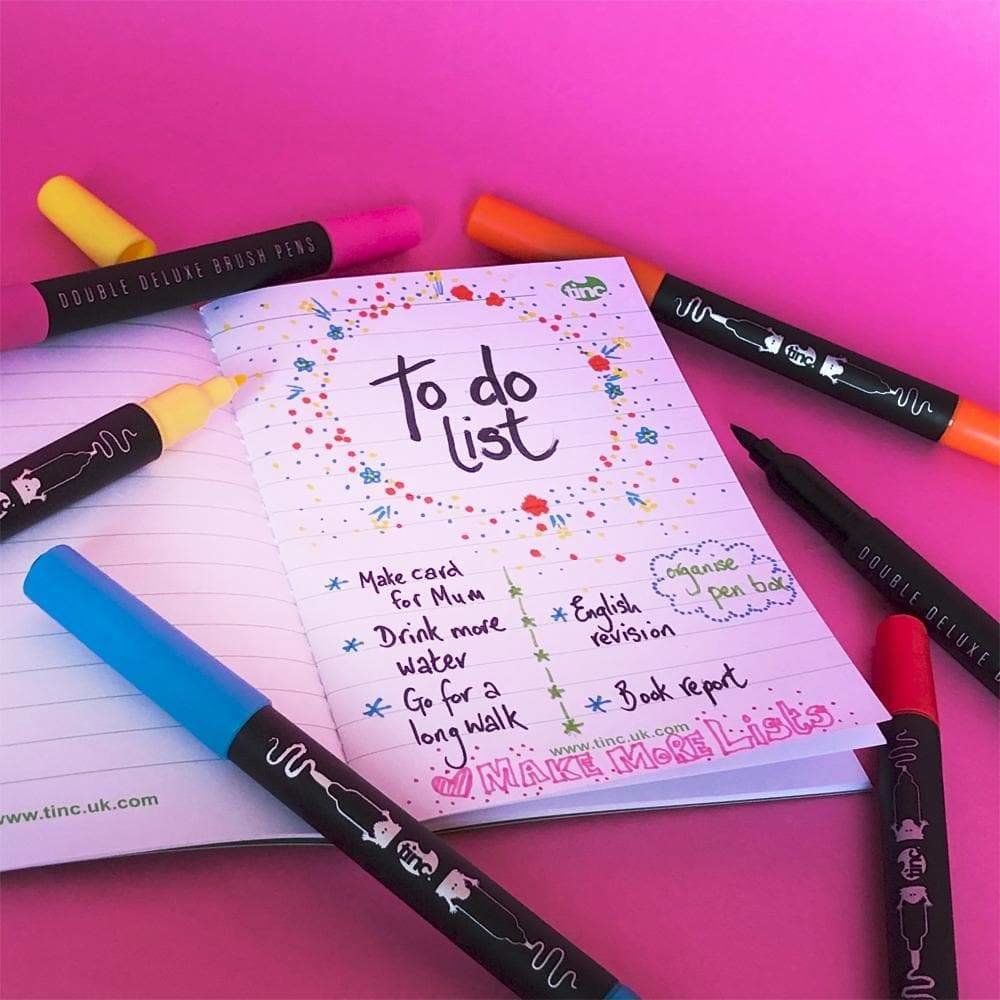 DOUBLE DELUXE BRUSH PENS
tinc
tinc
To do
list
DOUBLE DELUXE
Make card
for Mum
Drink more
water
Go for a
long walk
English
revision
Book report
organise
pen box
www.tinc.uk.com
MAKE MORE LISTS
www.tinc.uk.com
tinc
tinc